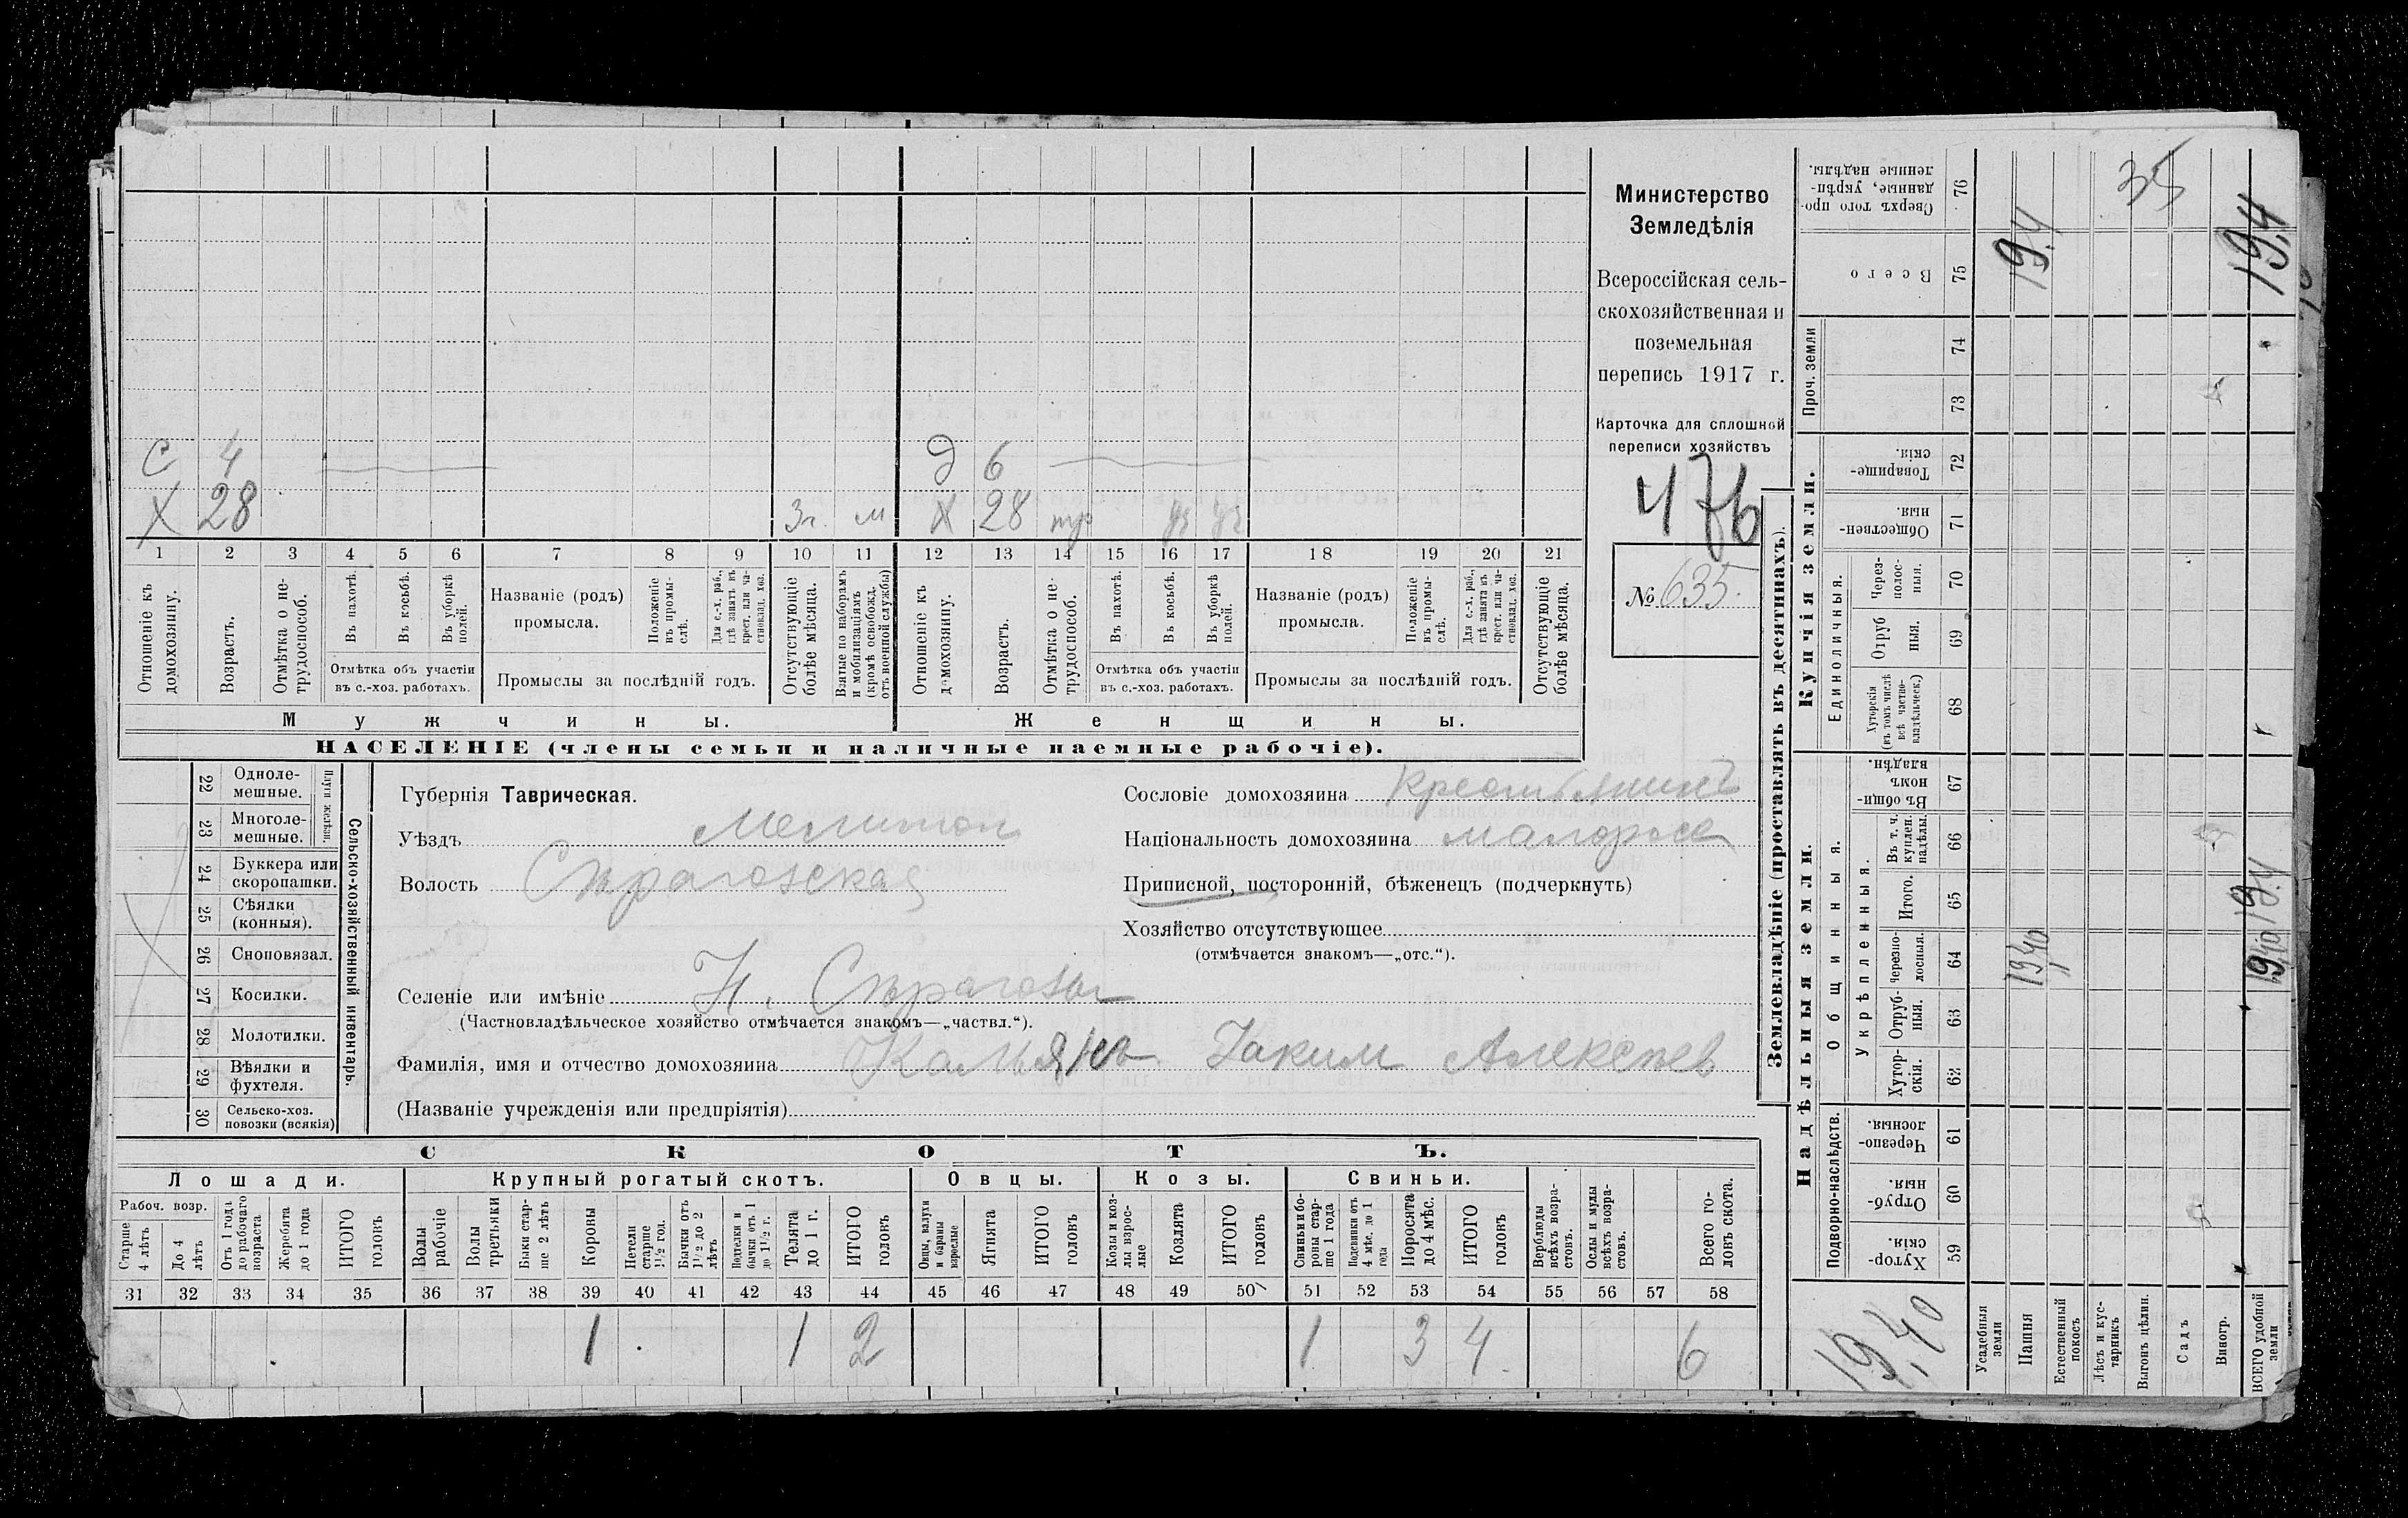 С 4 Д 6
Х 28 3 г. м Х 28
1 2 3 4 5 6 7 8 9 10 11 12 13 14 15 16 17 18 19 20 21
Отношеніе къ домохозяину.
Возрастъ.
Отмѣтка о не-трудоспособ.
Въ пахотѣ.
Въ косьбѣ.
Въ уборкѣ полей.
Отмѣтка объ участіи въ с.-хоз. работахъ.
Названіе (родъ) промысла.
Положеніе въ промы-слѣ.
Для с.-х. раб., гдѣ занятъ въ крест. или ча-стновлад. хоз.
Промыслы за послѣдній годъ.
Отсутствующіе болѣе мѣсяца.
Взятые по наборамъ и мобилизаціямъ (кромѣ освобожд. отъ военной службы)
Отношеніе къ домохозяину.
Возрастъ.
Отмѣтка о не-трудоспособ.
Въ пахотѣ.
Въ косьбѣ.
Въ уборкѣ полей.
Отмѣтка объ участіи въ с.-хоз. работахъ.
Названіе (родъ) промысла.
Положеніе въ промы-слѣ.
Для с.-х. раб., гдѣ занята въ крест. или ча-стновлад. хоз.
Промыслы за послѣдній годъ.
Отсутствующіе болѣе мѣсяца.
Мужчины. Женщины.
НАСЕЛЕНІЕ (члены семьи и наличные наемные рабочіе).
Министерство
Земледѣлія
Всероссійская сель-
скохозяйственная и
поземельная
перепись 1917 г.
Карточка для сплошной
переписи хозяйствъ
476
№ 635
22 Одноле-мешные.
23 Многоле-мешные.
24 Буккера или скоропашки.
25 Сѣялки (конныя).
26 Сноповязал.
27 Косилки.
28 Молотилки.
29 Вѣялки и фухтеля.
30 Сельско-хоз. повозки (всякія)
Сельско-хозяйственный инвентарь.
Губернія Таврическая.
Уѣздъ Мелитоп
Волость Сѣрогозская
Сословіе домохозяина Крестьянинъ
Національность домохозяина малоросс
Приписной, посторонній, бѣженецъ (подчеркнуть)
Хозяйство отсутствующее
(отмѣчается знакомъ—„отс.“).
Селеніе или имѣніе Н. Сѣрогозы
(Частновладѣльческое хозяйство отмѣчается знакомъ—„частвл.“).
Фамилія, имя и отчество домохозяина Іаким Алексѣев
(Названіе учрежденія или предпріятія)
СКОТЪ.
Лошади. Крупный рогатый скотъ. Овцы. Козы. Свиньи.
Рабоч. возр.
Старше 4 лѣтъ
До 4 лѣтъ
Отъ 1 года до рабочаго возраста
Жеребята до 1 года
ИТОГО головъ
Волы рабочіе
Волы третьяки
Быки стар-ше 2 лѣтъ
Коровы
Нетели старше 1½ год.
Бычки отъ 1½ до 2 лѣтъ
Подтелки и бычки отъ 1 до 1½ г.
Телята до 1 г.
ИТОГО головъ
Овцы, валухи и бараны взрослые
Ягнята
ИТОГО головъ
Козы и коз-лы взрос-лые
Козлята
ИТОГО головъ
Свиньи и бо-ровы стар-ше 1 года
Подсвинки отъ 4 мѣс. до 1 года
Поросята до 4 мѣс.
ИТОГО головъ
Верблюды всѣхъ возра-стовъ.
Ослы и мулы всѣхъ возра-стовъ.
Всего го-ловъ скота.
31 32 33 34 35 36 37 38 39 40 41 42 43 44 45 46 47 48 49 50 51 52 53 54 55 56 57 58
1 1 2 1 3 4 6
Землевладѣніе (проставлять въ десятинахъ).
Сверхъ того про-данные, укрѣп-ленные надѣлы. 76 35
Всего 75 19,4 19,4
Проч. земли 74
73
Купчія земли.
Товарище-скія. 72
Обществен-ныя. 71
Единоличныя.
Через-полос-ныя. 70
Отруб ныя. 69
Хуторскія (въ томъ числѣ всѣ частно-владѣльческ.) 68
Надѣльныя земли.
Общинныя.
Въ общи-номъ владѣн. 67
Укрѣпленныя.
Въ т. ч. куплен. надѣлы. 66
Итого. 65 19,4
Черезпо-лосныя. 64 19,40 19,40
Отруб-ныя. 63
Хутор-скія. 62
Подворно-наслѣдств.
Черезпо-лосныя. 61
Отруб-ныя. 60
Хутор-скія. 59
19,40
Усадебныя земли
Пашня
Естественный покосъ
Лѣсъ и кус-тарникъ
Выгонъ цѣлин.
Садъ
Виногр.
ВСЕГО удобной земли